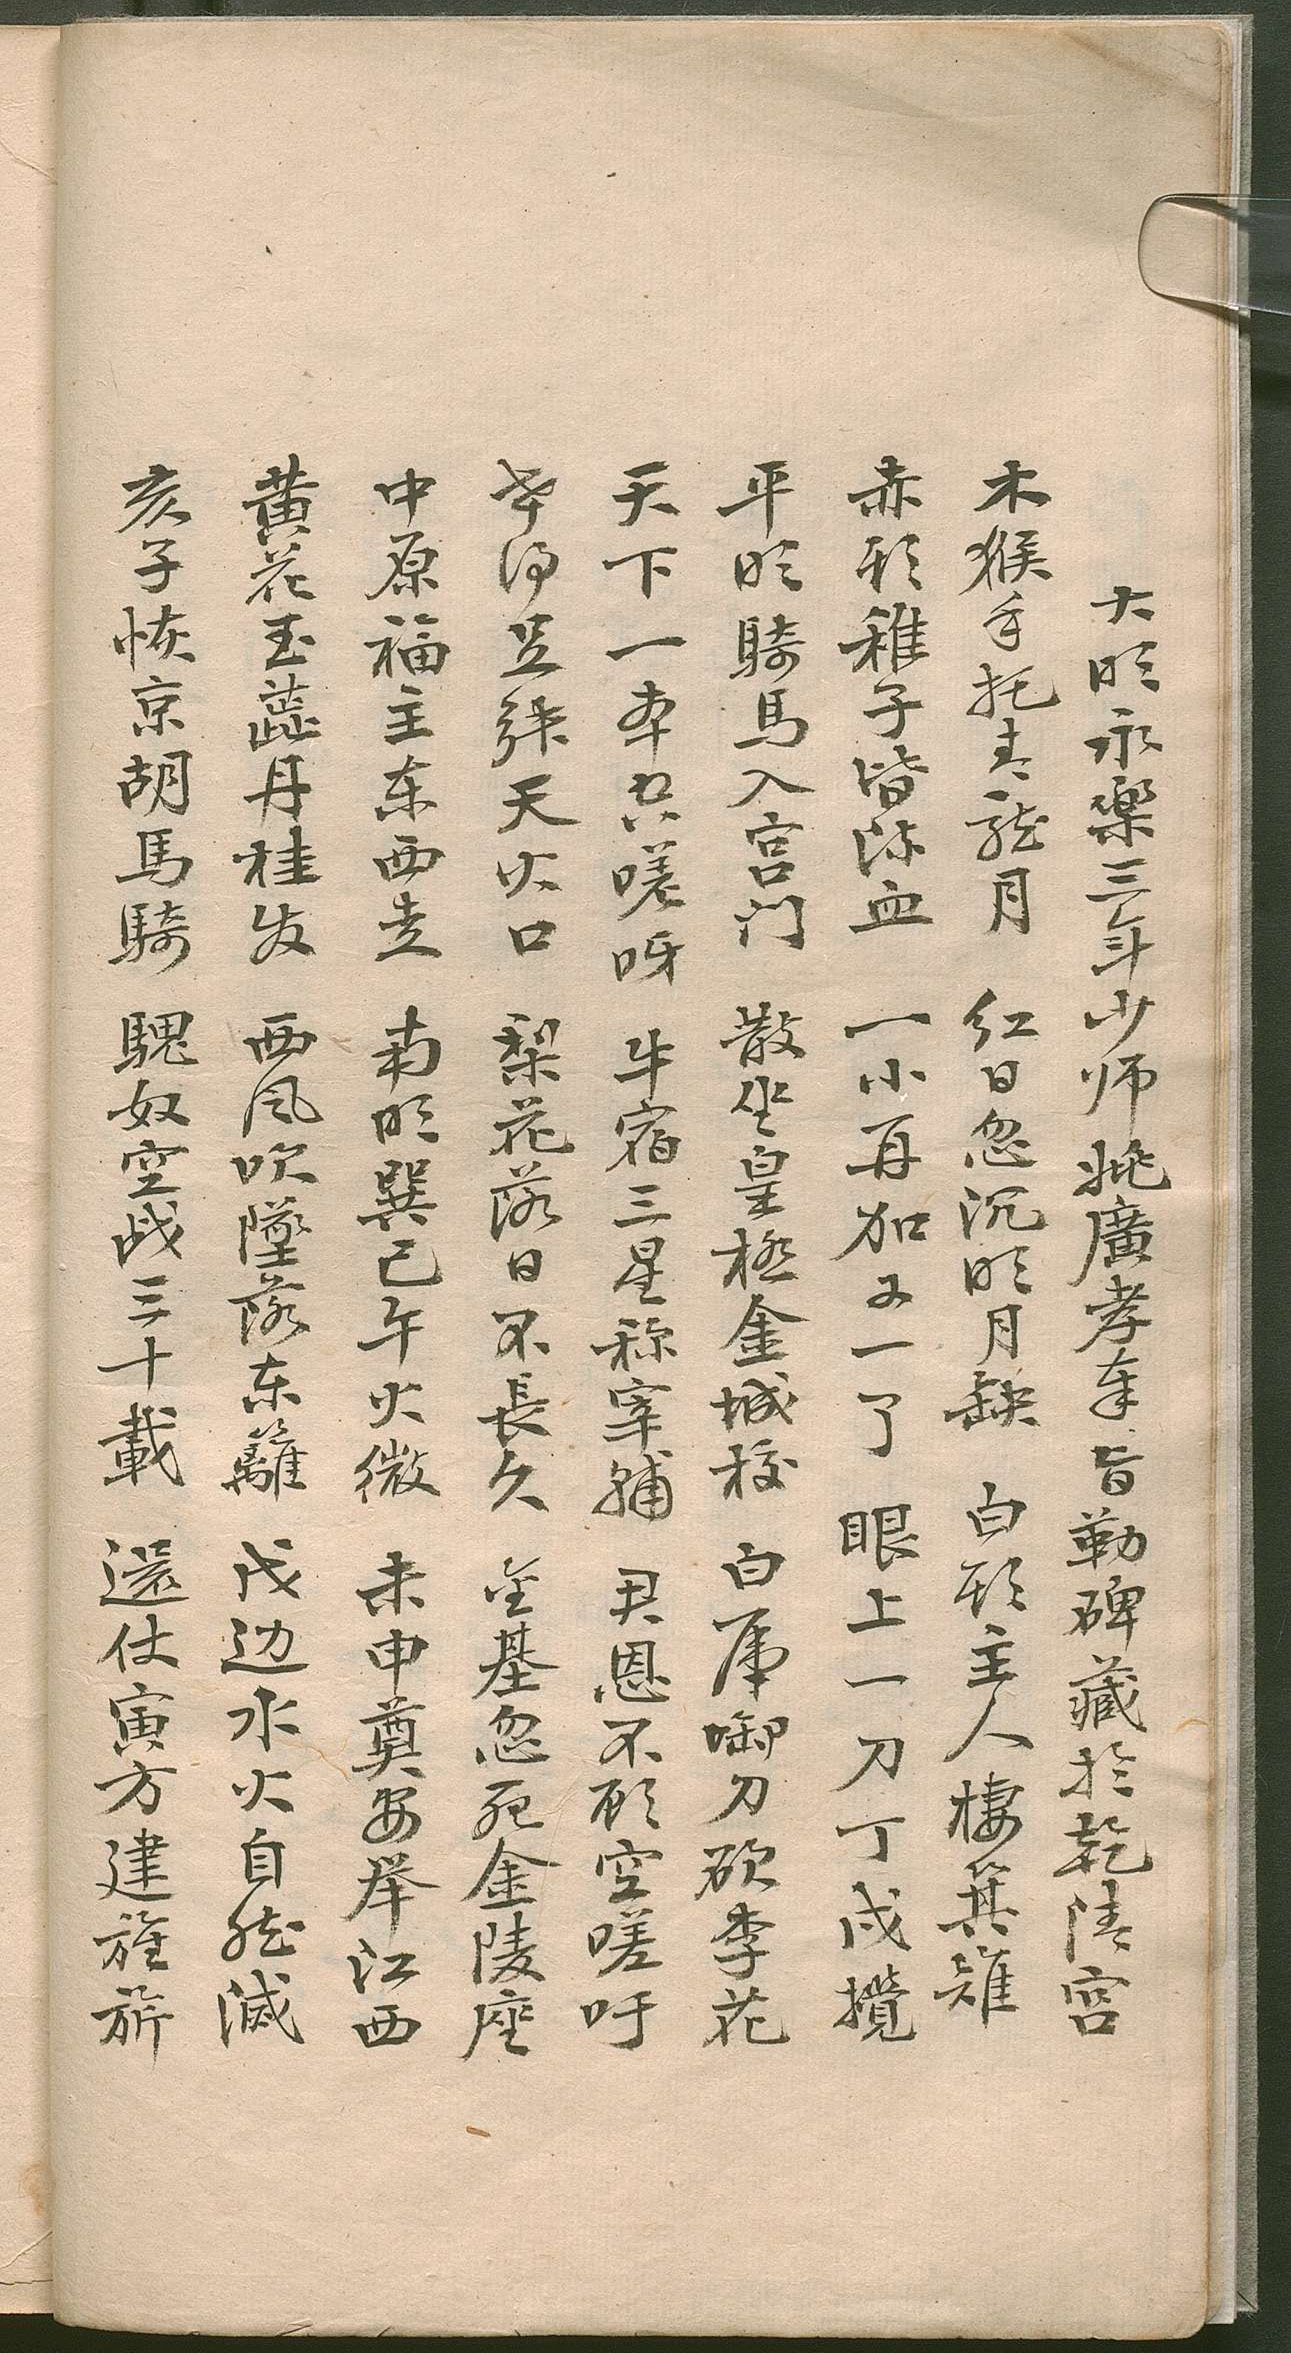 大明永樂三年少师姚廣孝奉旨勒碑藏於乾清宮
木猴手托青龙月 红日忽沉明月缺 白头主人棲箕雉
赤形稚子皆流血 一小再加又一了 眼上一刀丁戌攪
平明騎馬入宫门 散坐皇極金城校 白虎啣刀砍李花
天下一本共嗟呀 牛宿三星称宰輔 君恩不顾空嗟吁
天火口 梨花落日不長久 金基忽死金陵座
中原福主东西走 南明巽已午火微 未申奠安举江西
黄花玉蕋丹桂发 西风吹墜落东籬 戊边水火自然滅
亥子恢京胡馬騎 騩奴空战三十載 還仗寅方建旌旂